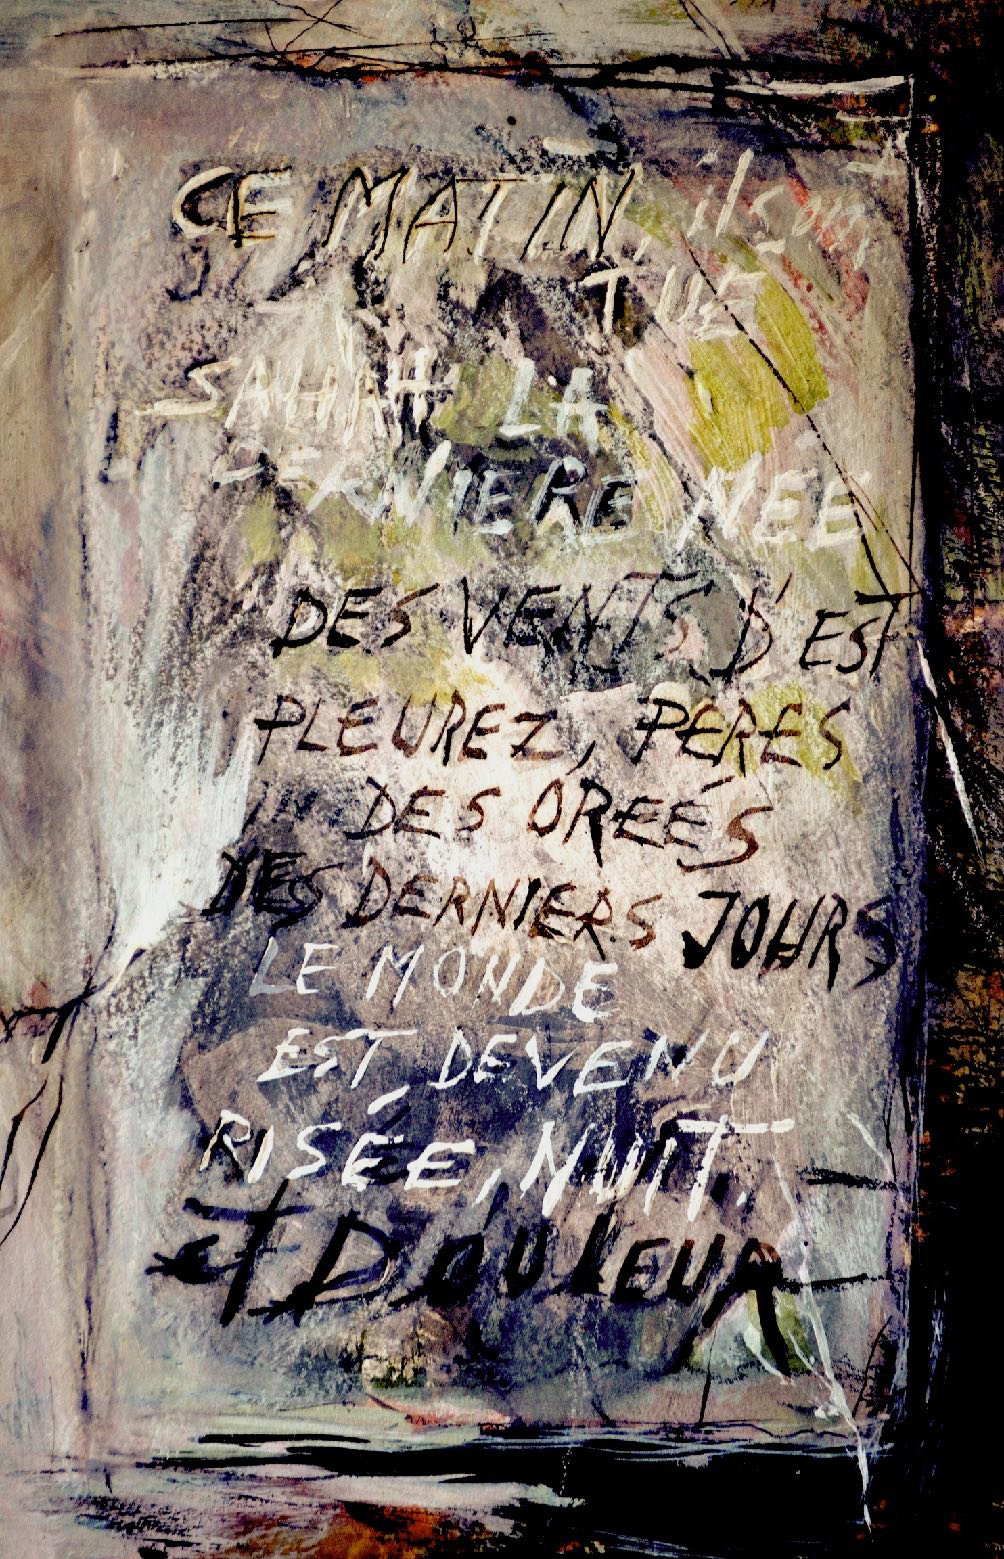 CE MATIN, ils ont
TUE
SAHAH LA
DERNIERE NÉE
DES VENTS D'EST
PLEUREZ, PERES
DES OREÉS
DES DERNIERS JOURS
LE MONDE
EST DEVENU
RISÉE, NUIT.
et DOULEUR